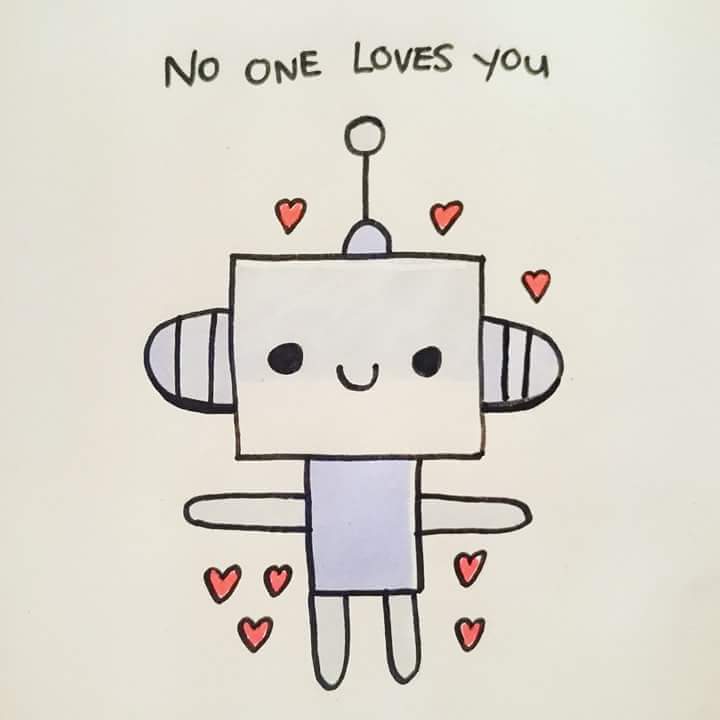 NO ONE LOVES YOU